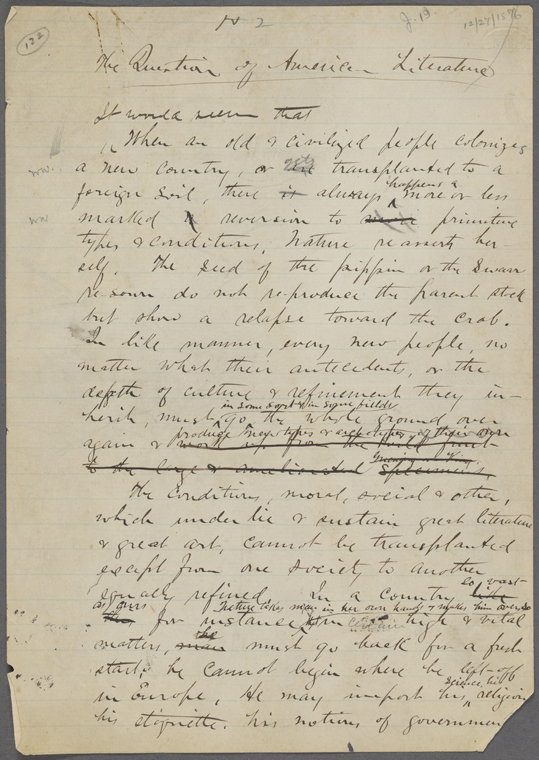 122
N 2
J. 19
12/27/1576
The Question of American Literature
It would seem that
When an old & civilized people colonizes
ww. a new country, or gets transplanted to a
happens a
foreign soil, there is always more or less
ww marked reversion to primitive
types & conditions. Nature re asserts her-
self. The seed of the pippin or the Swaar
re-sown do not re-produce the parent stock
but show a relapse toward the crab.
In like manner, every new people, no
matter what their antecedents, or the
depth of culture & refinement they in-
in some sort & in some fields
herit, must go the whole ground over
produce new types & of their own
again & work up from the
to the large & specimens,
The conditions, moral, social & other,
which under lie & sustain great literature
& great art, cannot be transplanted
except from one society to another
so vast
equally refined. In a country like
as ours Nature takes man in her own hands & makes him over, so
for instance high & vital
the
matters, man must go back for a fresh
start; he cannot begin where he left off
science, his
in Europe, He may import his religion
his etiquette, his notions of government